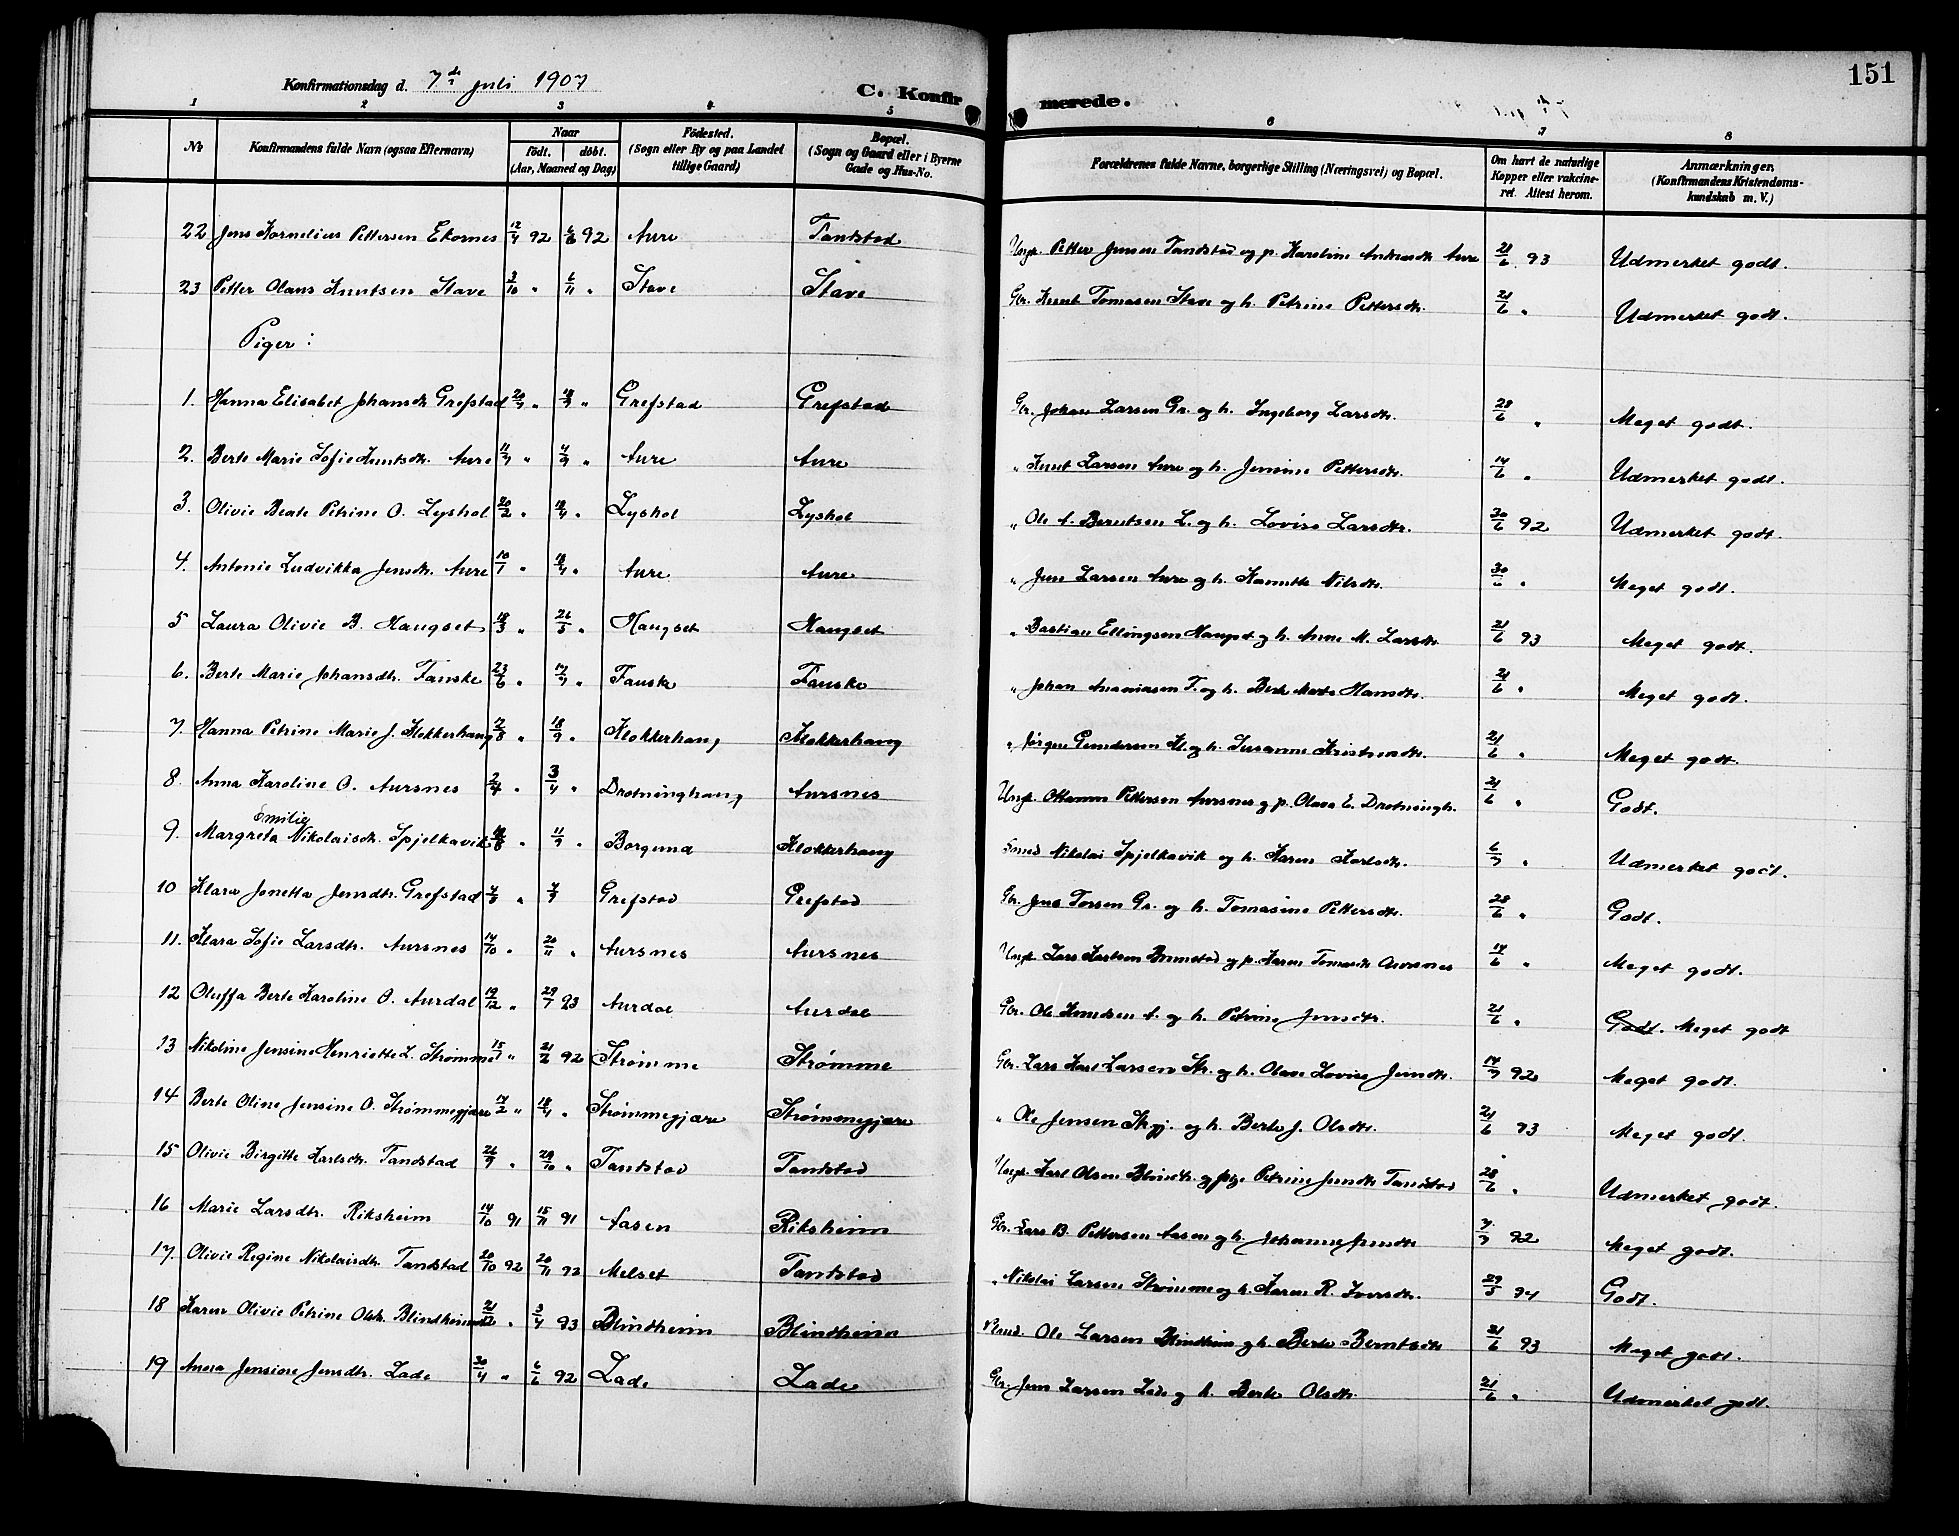 151
Konfirmationsdag d. 7de juli 1907
C. Konfirmerede.
1 2 3 4 5 6 7 8
No
Konfirmandens fulde Navn (ogsaa Efternavn)
Naar
født. døbt.
(Aar, Maaned og Dag)
Fødested.
(Sogn eller By og paa Landet
tillige Gaard)
Bopæl.
(Sogn og Gaard eller i Byerne
Gade og Hus-No.
Forældrenes fulde Navne, borgerlige Stilling (Næringsvei) og Bopæl.
Om havt de naturlige
Kopper eller vakcine-
ret. Attest herom.
Anmærkninger.
(Konfirmandens Kristendoms-
kundskab m. V.)
22 Jens Kornelius Pettersen Ekornes 12/4 92 6/6 92 Aure Tandstad Ungk. Petter Jensen Tandstad og p. Karoline Aure 21/6 93 Udmerket godt.
23 Petter Olaus Knutsen Stave 3/10 " 6/11 " Stave Stave Gbr. Knut Tomasen Stave og h. Petrine Pettersdtr. 21/6 " Udmerket godt.
Piger:
1. Hanna Elisabet Johansdtr. Grefstad 20/7 " 18/9 " Grefstad Grefstad Gbr. Johan Larsen Gr. og h. Ingeborg Larsdtr. 28/6 " Meget godt.
2. Berte Marie Sofie Knutsdtr. Aure 11/7 " 4/9 " Aure Aure " Knut Larsen Aure og h. Jensine Pettersdtr. 14/6 " Udmerket godt.
3. Olivie Beate Petrine O. Lyshol 20/2 " 18/4 " Lyshol Lyshol " Ole A. Berntsen L. og h. Lovise Larsdtr. 30/6 92 Udmerket godt.
4. Antonie Ludvikka Jensdtr. Aure 10/1 " 18/4 " Aure Aure " Jens Larsen Aure og h. Nilsdtr. 30/6 " Meget godt.
5 Laura Olivie B. Haugset 18/3 " 26/5 " Haugset Haugset " Bastian Ellingsen Haugset og h. Anne M. Larsdtr 21/6 93 Meget godt.
6. Berte Marie Johansdtr. Fauske 23/6 " 17/7 " Fauske Fauske " Johan Ananiasen F. og h. Berte Marta Hansdtr. 21/6 " Meget godt.
7. Hanna Petrine Marie J. Klokkerhaug 7/8 " 18/9 " Klokkerhaug Klokkerhaug " Jørgen Gundersen Kl. og h. Susanne Kristensdtr. 21/6 " Meget godt.
8. Anna Karoline O. Aursnes 2/4 " 3/4 " Drotninghaug Aursnes Ungk. Pettersen Aursnes og p. Olava E. Drotningh. 21/6 " Godt.
9. Margreta Emilie Nikolaisdtr. Spjelkavik 18/8 " 11/9 " Borgund Klokkerhaug Smed Nikolai Spjelkavik og h. Karen Karlsdtr. 6/7 " Udmerket godt.
10 Klara Jonetta Jensdtr. Grefstad " 4/9 Grefstad Grefstad Gbr. Jens Torsen Gr. og h. Tomasine Pettersdtr. 28/6 " Godt.
11. Klara Sofie Larsdtr. Aursnes 14/10 " 20/11 " Aursnes Aursnes Ungk. Lars Karlsen Brunstad og p. Karen Tomasdtr Aursnes 14/6 " Meget godt.
12 Oluffa Berte Karoline O. Aurdal 19/12 " 29/7 93 Aurdal Aurdal Gbr. Ole Knudsen A. og h. Petrine Jensdtr. 21/6 " Godt. Meget godt
13 Nikoline Jensine Henriette L. Strømme 15/1 " 21/2 92 Strømme Strømme Gbr. Lars Karl Larsen Str. og h. Olave Lovise Jensdtr. 14/7 92 Meget godt.
14 Berte Oline Jensine O. Strømmegjære 17/2 " 18/4 " Strømmegjære Strømmegjære " Ole Jensen Stgj. og h. Berte J. Olsdtr. 21/6 93 Meget godt.
15 Olivie Birgitte Karlsdtr. Tandstad 26/9 " 29/10 " Tandstad Tandstad Ungk. Karl Olsen og pige Petrine Jensdtr Tandstad 28/6 " Udmerket godt.
16 Marie Larsdtr. Riksheim 14/10 91 15/11 91 Aasen Riksheim Gbr. Lars B. Pettersen Aasen og h. Johanne Jensdtr 7/7 92 Meget godt.
17. Olivie Regine Nikolaisdtr. Tandstad 20/10 92 20/11 92 Melset Tandstad " Nikolai Larsen Strømme og h. Karen R. Iversdtr. 29/5 94 Godt.
18 Karen Olivie Petrine Olsdtr. Blindheim 21/12 " 3/4 93 Blindheim Blindheim Ole Larsen Blindheim og h. Berte Berntsdtr 21/6 93 Meget godt.
19 Anna Jensine Jensdtr. Lade 30/4 " 6/6 92 Lade Lade Gbr. Jens Larsen Lade og h. Berte Olsdtr. 21/6 " Udmerket godt.